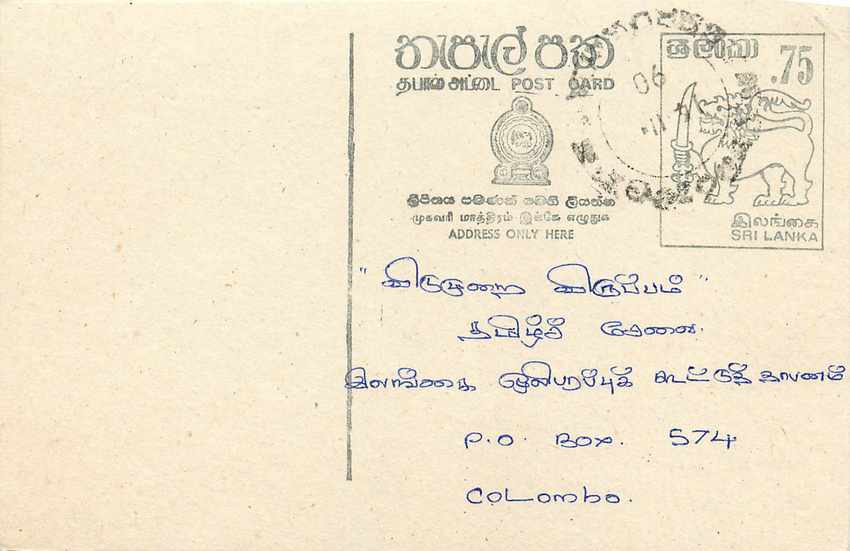 තැපැල් පත
தபால் அட்டை POST CARD
ශ්‍රී ලංකා
.75
06
ලිපිනය පමණක් මෙහි ලියන්න
முகவரி மாத்திரம் இங்கே எழுதுக
ADDRESS ONLY HERE
இலங்கை
SRI LANKA
" விடுமுறை விருப்பம் "
தமிழ்ச் சேவை.
இலங்கை ஒலிபரப்புக் கூட்டுத்தாபனம்
P.O. Box. 574
Colombo.